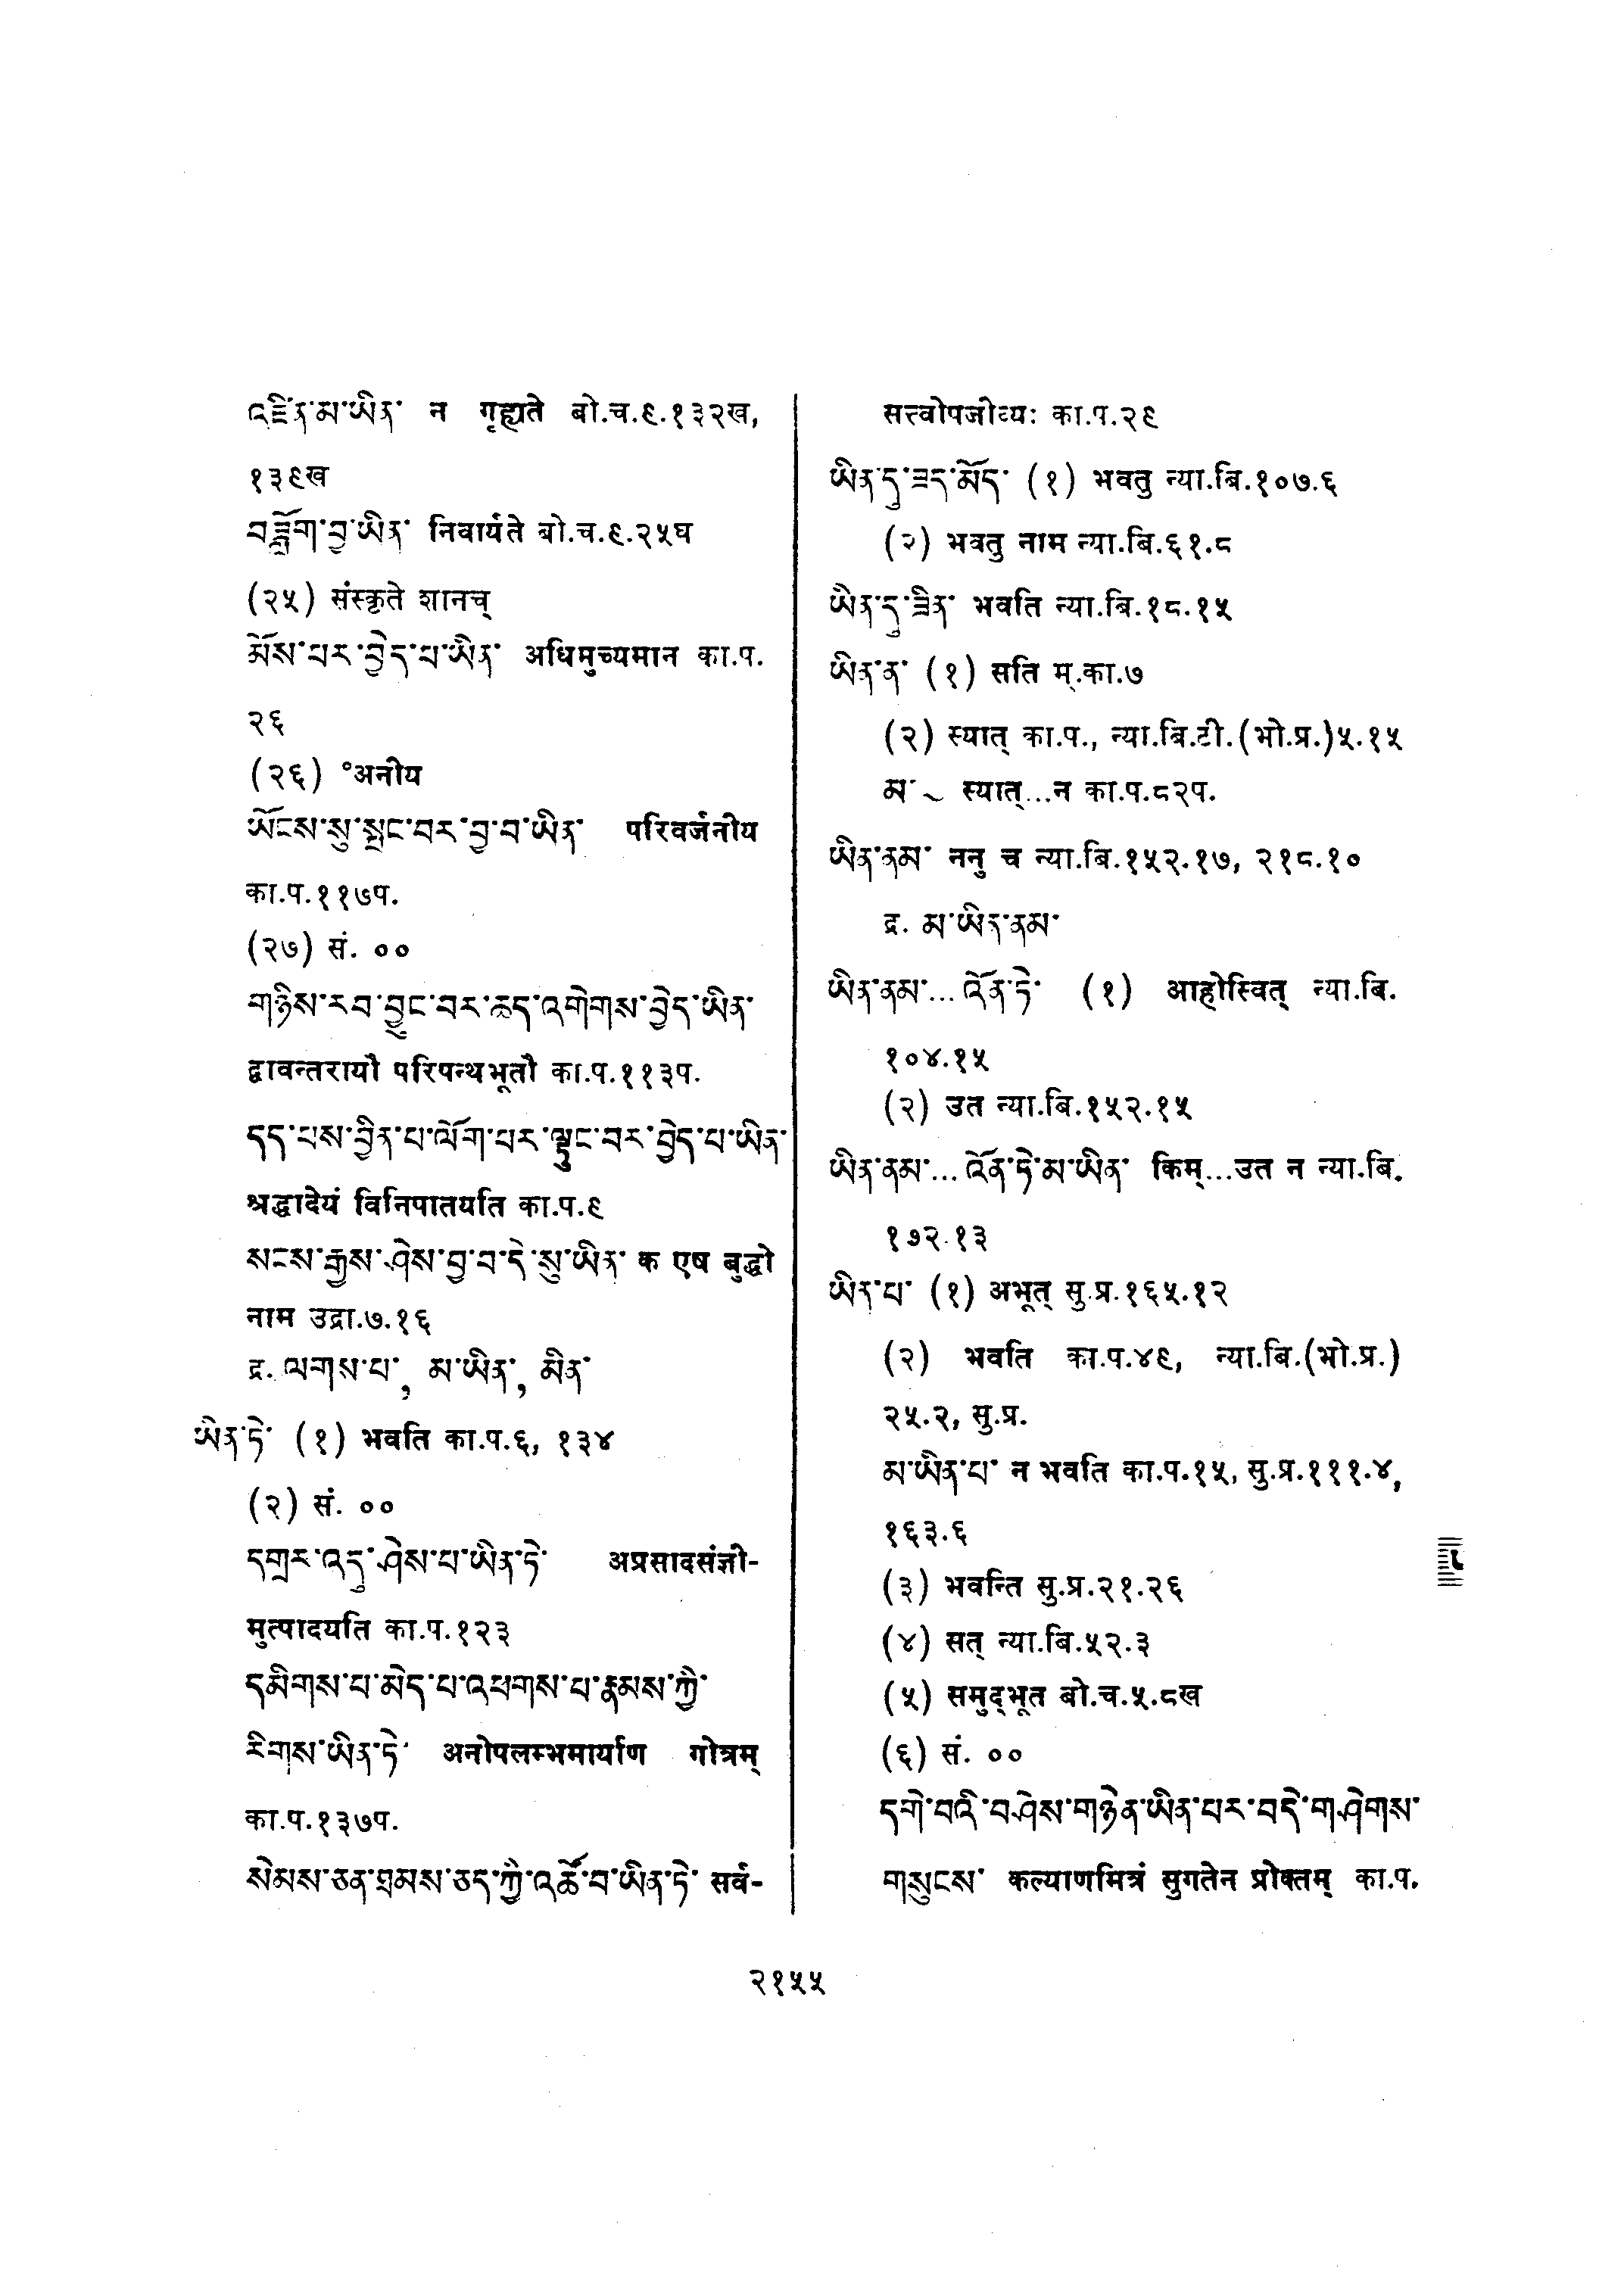 འཛིན་མ་ཡིན་ न गृह्यते बो.च.९.१३२ख,
१३९ख
བཟློག་བྱ་ཡིན་ निवार्यते बो.च.९.२५घ
(२५) संस्कृते शानच्
མོས་པར་བྱེད་པ་ཡིན་ अधिमुच्यमान का.प.
२६
(२६) °अनीय
ཡོངས་སུ་སྤང་བར་བྱ་བ་ཡིན་ परिवर्जनीय
का.प.११७प.
(२७) सं. ००
གཉིས་རབ་བྱུང་བར་ཆད་འགེགས་བྱེད་ཡིན་
द्वावन्तरायौ परिपन्थभूतौ का.प.११३प.
དད་པས་བྱིན་པ་ལོག་པར་ལྟུང་བར་བྱེད་པ་ཡིན་
श्रद्धादेयं विनिपातयति का.प.९
སངས་རྒྱས་ཤེས་བྱ་བ་དེ་སུ་ཡིན་ क एष बुद्धो
नाम उद्रा.७.१६
द्र. ལགས་པ་, མ་ཡིན་, མིན་
ཡིན་ཏེ་ (१) भवति का.प.६, १३४
(२) सं. ००
དགྲར་འདུ་ཤེས་པ་ཡིན་ཏེ་ अप्रसादसंज्ञी-
मुत्पादयति का.प.१२३
དམིགས་པ་མེད་པ་འཕགས་པ་རྣམས་ཀྱི་
རིགས་ཡིན་ཏེ་ अनोपलम्भमार्याण गोत्रम्
का.प.१३७प.
སེམས་ཅན་ཐམས་ཅད་ཀྱི་འཚོ་བ་ཡིན་ཏེ་ सर्व-
सत्त्वोपजीव्यः का.प.२९
ཡིན་དུ་ཟད་མོད་ (१) भवतु न्या.बि.१०७.६
(२) भवतु नाम न्या.बि.६१.८
ཡིན་དུ་ཟིན་ भवति न्या.बि.१८.१५
ཡིན་ན་ (१) सति म्.का.७
(२) स्यात् का.प., न्या.बि.टी.(भो.प्र.)५.१५
མ་ ~ स्यात्...न का.प.८२प.
ཡིན་ནམ་ ननु च न्या.बि.१५२.१७, २१८.१०
द्र. མ་ཡིན་ནམ་
ཡིན་ནམ་... འོན་ཏེ་ (१) आहोस्वित् न्या.बि.
१०४.१५
(२) उत न्या.बि.१५२.१५
ཡིན་ནམ་... འོན་ཏེ་མ་ཡིན་ किम्...उत न न्या.बि.
१७२.१३
ཡིན་པ་ (१) अभूत् सु.प्र.१६५.१२
(२) भवति का.प.४९, न्या.बि.(भो.प्र.)
२५.२, सु.प्र.
མ་ཡིན་པ་ न भवति का.प.१५, सु.प्र.१११.४,
१६३.६
(३) भवन्ति सु.प्र.२१.२६
(४) सत् न्या.बि.५२.३
(५) समुद्भूत बो.च.५.८ख
(६) सं. ००
དགེ་བའི་བཤེས་གཉེན་ཡིན་པར་བདེ་གཤེགས་
གསུངས་ कल्याणमित्रं सुगतेन प्रोक्तम् का.प.
२१५५